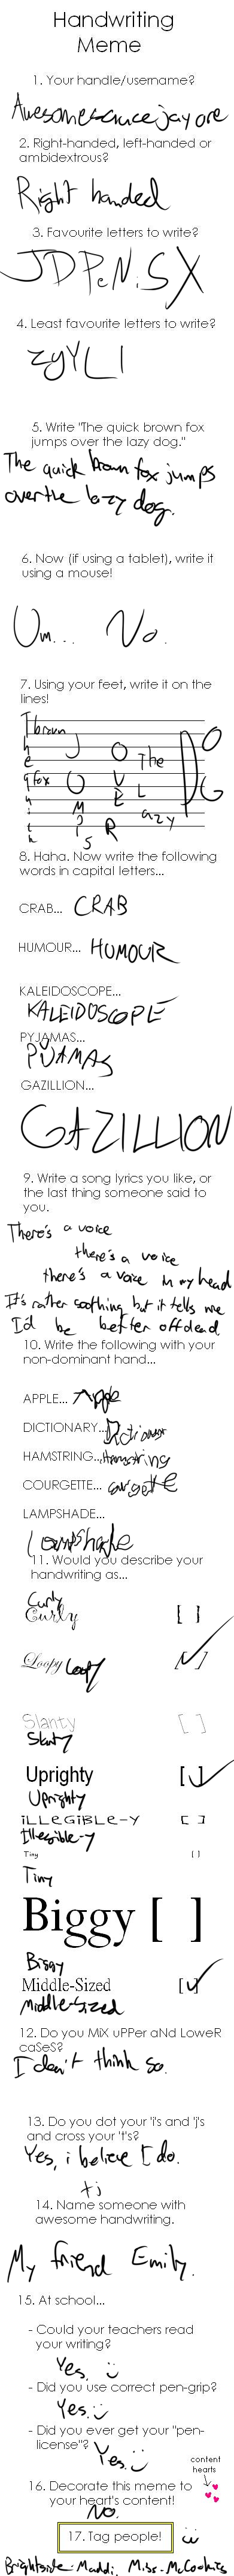 Handwriting
Meme
1. Your handle/username?
Awesomesaucejayore
2. Right-handed, left-handed or
ambidextrous?
Right handed
3. Favourite letters to write?
JDPeNiSX
4. Least favourite letters to write?
zyYLI
5. Write "The quick brown fox
jumps over the lazy dog."
The quick brown fox jumps
over the lazy dog.
6. Now (if using a tablet), write it
using a mouse!
Um... No.
7. Using your feet, write it on the
lines!
brown
fox
The
8. Haha. Now write the following
words in capital letters...
CRAB... CRAB
HUMOUR... HUMOUR
KALEIDOSCOPE...
KALEIDOSCOPE
PYJAMAS...
PYJAMAS
GAZILLION...
GAZILLION
9. Write a song lyrics you like, or
the last thing someone said to
you.
There's a voice
there's a voice
there's a voice in my head
It's rather soothing but it tells me
I'd be better off dead
10. Write the following with your
non-dominant hand...
APPLE... Apple
DICTIONARY... Dictionary
HAMSTRING... Hamstring
COURGETTE... courgette
LAMPSHADE...
Lampshade
11. Would you describe your
handwriting as...
Curly
Curly [ ]
Loopy Loopy [✓]
Slanty [ ]
Slanty
Uprighty [✓]
Uprighty
iLLeGiBLe-Y [ ]
Illegible-y
Tiny [ ]
Tiny
Biggy [ ]
Biggy
Middle-Sized [✓]
Middle-Sized
12. Do you MiX uPPer aNd LoweR
caSeS?
I don't think so.
13. Do you dot your 'i's and 'j's
and cross your 't's?
Yes, i believe I do.
t i
14. Name someone with
awesome handwriting.
My friend Emily.
15. At school...
- Could your teachers read
your writing?
Yes. :)
- Did you use correct pen-grip?
Yes. :)
- Did you ever get your "pen-
license"? Yes. :)
content
hearts
16. Decorate this meme to
your heart's content!
No.
17. Tag people! :)
Brightside-Maddi, Miss-McCookies